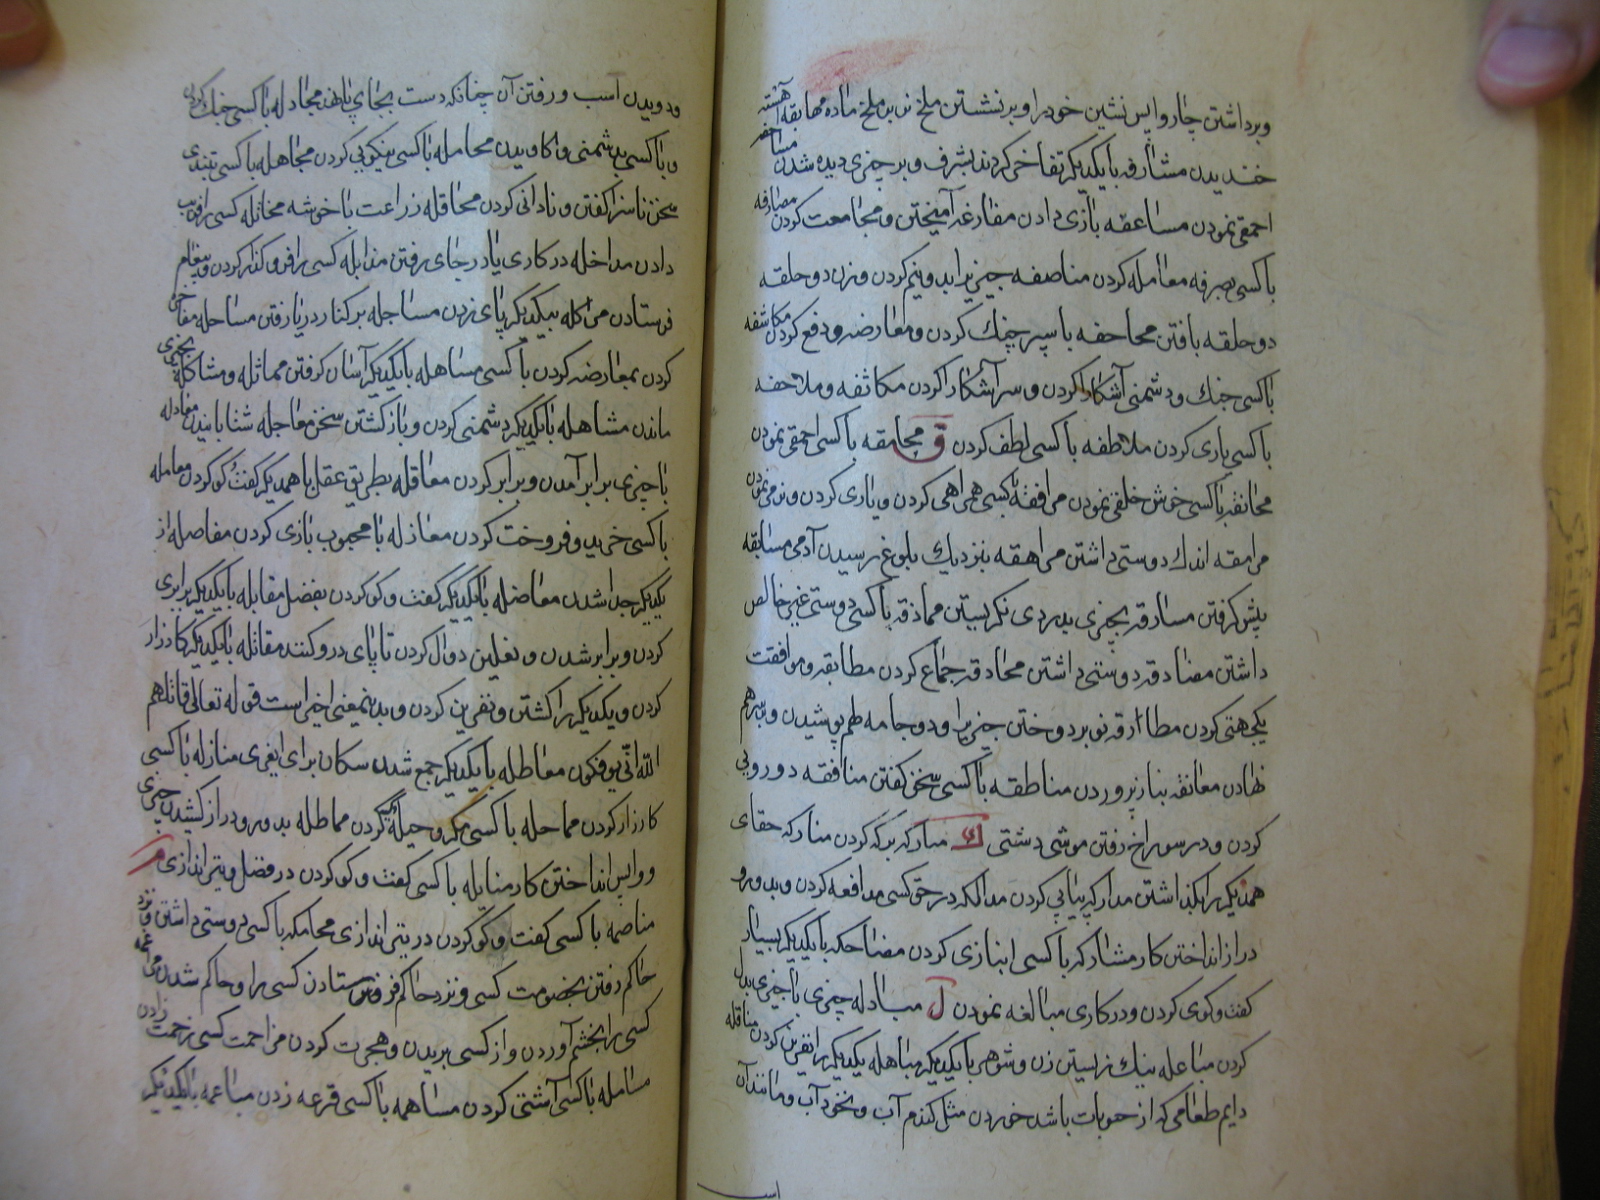 وبرداشتن چاروا پس نشین خود را و بر نشستن ملخ نر بر ملخ ماده مهابقه آهسته
خندیدن مشارفه بایکدیکر تفاخر کردند بشرف و بر چیزی دیده شدن
احمقی نمودن مساعفه بازی دادن مقارغه آمیختن و مجامعت کردن مصارفه
باکسی بصرفه معامله کردن مناصفه چیزیرا بدو نیم کردن وزره دو حلقه
دو حلقه بافتن مجاحفه باسپر جنك کردن و معارضه و دفع کردن مکاشفه
باکسی جنك و دشمنی آشکارا کردن و سر آشکارا کردن مکاثفه و ملاحفه
باکسی یاری کردن ملاطفه باکسی لطف کردن ق محامقه باکسی احمقی نمودن
مخالقه باکسی خوش خلقی نمودن مرافقة باکسی همراهی کردن و یاری کردن و نرمی نمودن
مرامقه اندك دوستی داشتن مراهقه بنزدیك بلوغ رسیدن آدمی مسابقه
پیش کرفتن مسارقه بچیزی بدزدی نکریستن مماذقه باکسی دوستی غیر خالص
داشتن مصادقه دوستی داشتن محادقه جماع کردن مطابقه و موافقت
یکجهتی کردن مطارقه نو بردوختن چیزیرا و دو جامه بهم پوشیدن و بر سر هم
نهادن معانقه بناز پروردن مناطقه باکسی سخن کفتن منافقه دورویی
کردن و در سوراخ رفتن موش دشتی ك مبارکه برکه کردن متارکه حقهای
همدیکر را بگذاشتن مدارکه پیاپی کردن مدالکه در حق کسی مدافعه کردن و بدورو
دراز انداختن کار مشارکه باکسی انبازی کردن مضاحکه بایکدیکر بسیار
کفت وکوی کردن و در کاری مبالغه نمودن ل مبادله چیزی باچیزی بدل
کردن مباعله نیك زیستن زن و شوهر بایکدیکر مباهله یکدیکر را نفرین کردن مناقله
دایم طعامی که از حبوبات باشد خوردن مثل کندم آب و نخود آب و مانند آن
ودویدن اسب و رفتن آن چنانکه دست بجای پا نهد مجادله باکسی جنك کردن
و باکسی بدشمنی واکاویدن مجامله باکسی نیکویی کردن مجاهله باکسی تندی
سخن ناسزا کفتن و نادانی کردن محاقله زراعت باخوشه مخاتله کسی را فریب
دادن مداخله در کاری یا در جای رفتن مذابله کسی را فرو کذار کردن و پیغام
فرستادن مراکله بیکدیکر پای زدن مساجله بر کنار دریا رفتن مساحله مفاخرت
کردن بمعارضه کردن باکسی مساهله بایکدیکر آسان کرفتن مماثله و مشاکله بچیزی
ماندن مشاهله بایکدیکر دشمنی کردن و بازکشتن سخن معاجله شتابانیدن معادله
باچیزی برابر آمدن و برابر کردن معاقله بطریق عقل باهمدیکر کفت و کو کردن معامله
باکسی خرید و فروخت کردن مغازله بامحبوب بازی کردن مفاصله از
یکدیکر جدا شدن مفاضله بایکدیکر کفت وکو کردن بفضل مقابله بایکدیکر برابری
کردن و برابر شدن و نعلین دوال کردن تا پای درو کنند مقاتله بایکدیکر کارزار
کردن و یکدیکر را کشتن و نفرین کردن و بدین معنی اخیر است قوله تعالی قاتلهم
الله انی یوفکون معاظله بایکدیکر جمع شدن سکان برای منازله باکسی
کارزار کردن مماحله باکسی مکر و حیله کردن مماطله بدور و دراز کشیدن چیزی
و واپس انداختن کار مناضله باکسی کفت وکو کردن در فضل و تیر اندازی م
مناصمه باکسی کفت و کو کردن در تیر اندازی محاکمه باکسی دوستی داشتن و نزد
حاکم رفتن بخصومت کسی و نزد حاکم فرستادن کسی را و حاکم شدن
کسی را بخشم آوردن و از کسی بریدن و هجرت کردن مزاحمت کسی زحمت دادن
مسالمه باکسی آشتی کردن مساهمه باکسی قرعه زدن مساعمه بایکدیکر